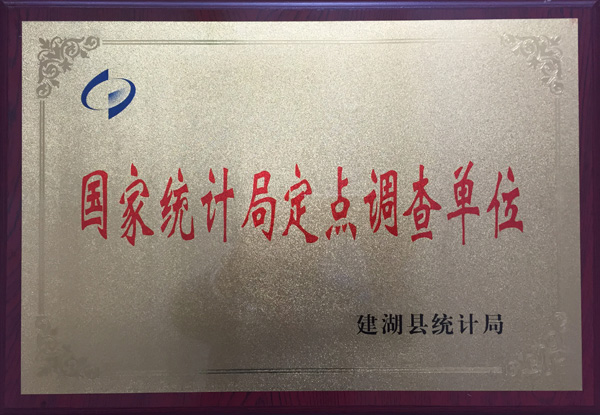 国家统计局定点调查单位
建湖县统计局